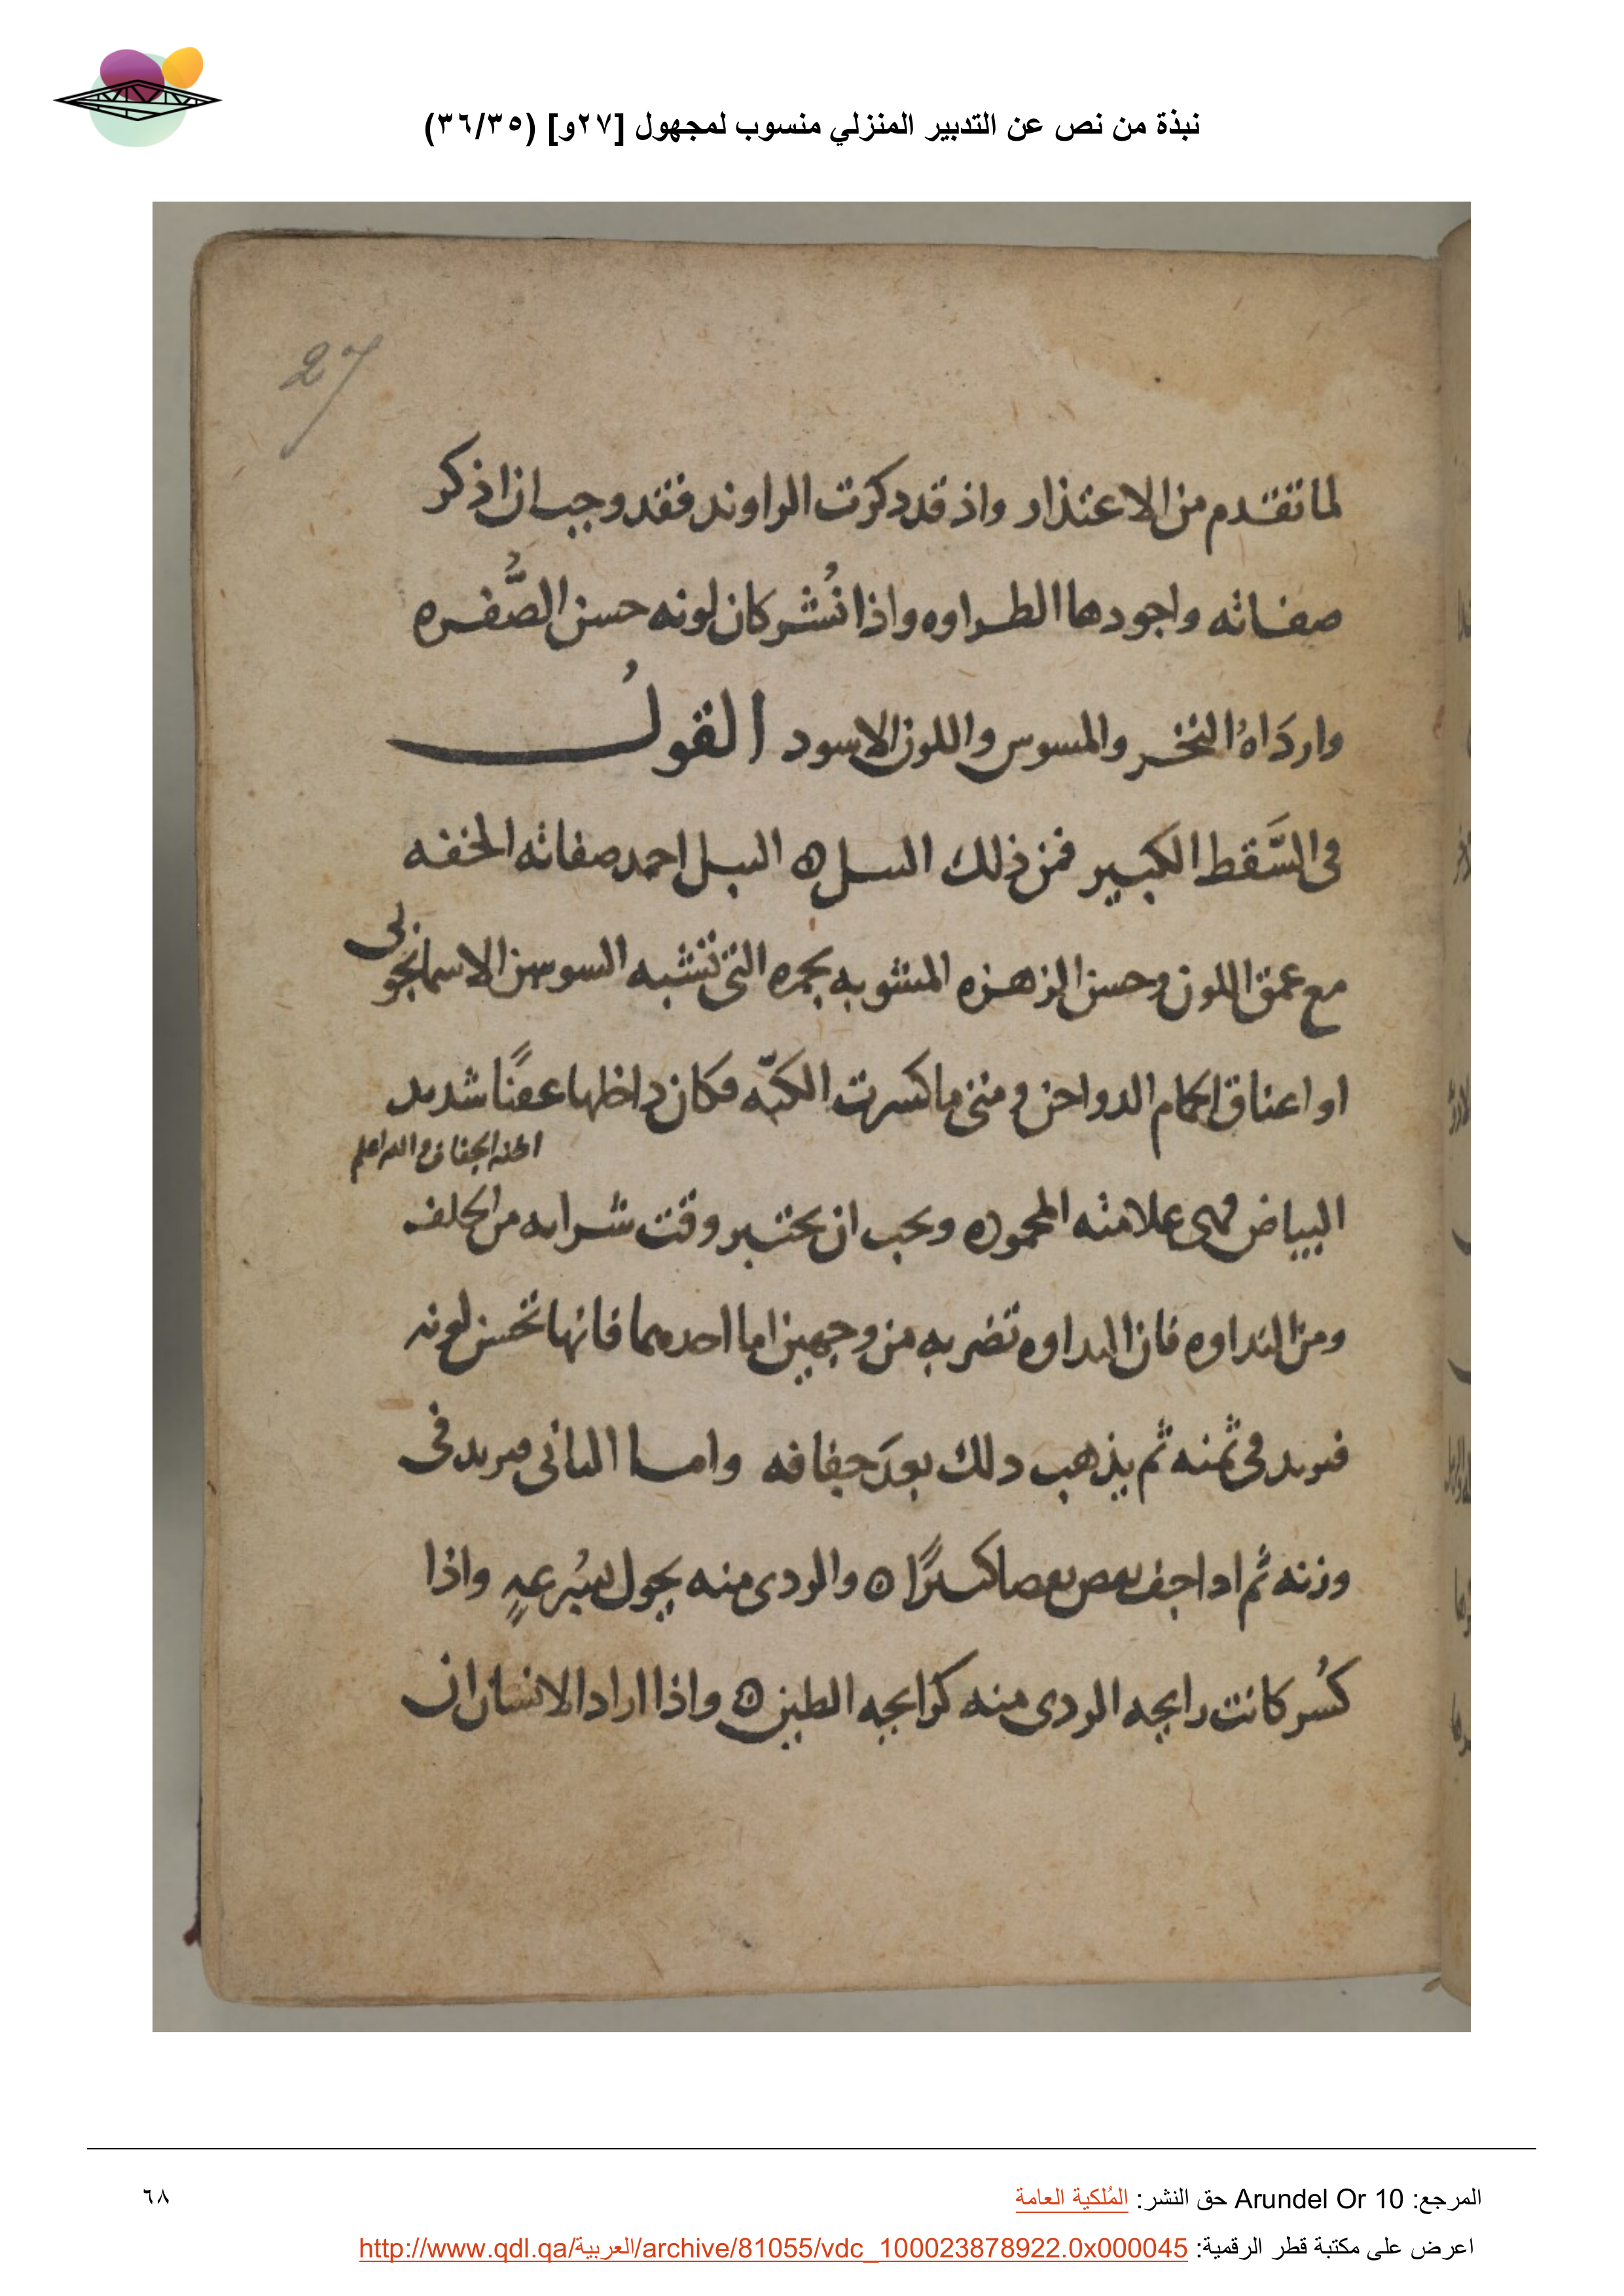 نبذة من نص عن التدبير المنزلي منسوب لمجهول [٢٧و] (٣٦/٣٥)
27
لما تقدم من الاعتذار واذ قد دكرت الراوند فقد وجب ان اذكر
صفاته واجودها الطراوه واذا نُشر كان لونه حسن الصُّفره
واردَاهُ النخر والمسوس واللون الاسود القولُ
فى السَّقط الكبير فمن ذلك السل ه النيل احمد صفاته الخفه
مع عمق اللون وحسن الزهزه المشوبه بحمره التى تشبه السوسن الاسمانجونى
او اعناق الحمام الدواجن ومتى ما كسرت الكبّه فكان داخلها عفنًا شديد
الجفاف والله اعلم
البياض فهى علامته المحموده ويجب ان يختبر وقت شرايه من الحلفه
ومن النداوه فان النداوه تضر به من وجهين اما احدهما فانها تحسن لونه
فيزيد فى ثمنه ثم يذهب دلك بعدَ جفافه واما الثانى فيزيد فى
وزنه ثم ادا جف نقص نقصا كثيرًا ه والردى منه يحول بسُرعهٍ واذا
كسُر كانت رايحه الردى منه كرايحه الطين ه واذا اراد الانسان ان
المرجع: Arundel Or 10 حق النشر: المُلكية العامة
٦٨
اعرض على مكتبة قطر الرقمية: http://www.qdl.qa/العربية/archive/81055/vdc_100023878922.0x000045